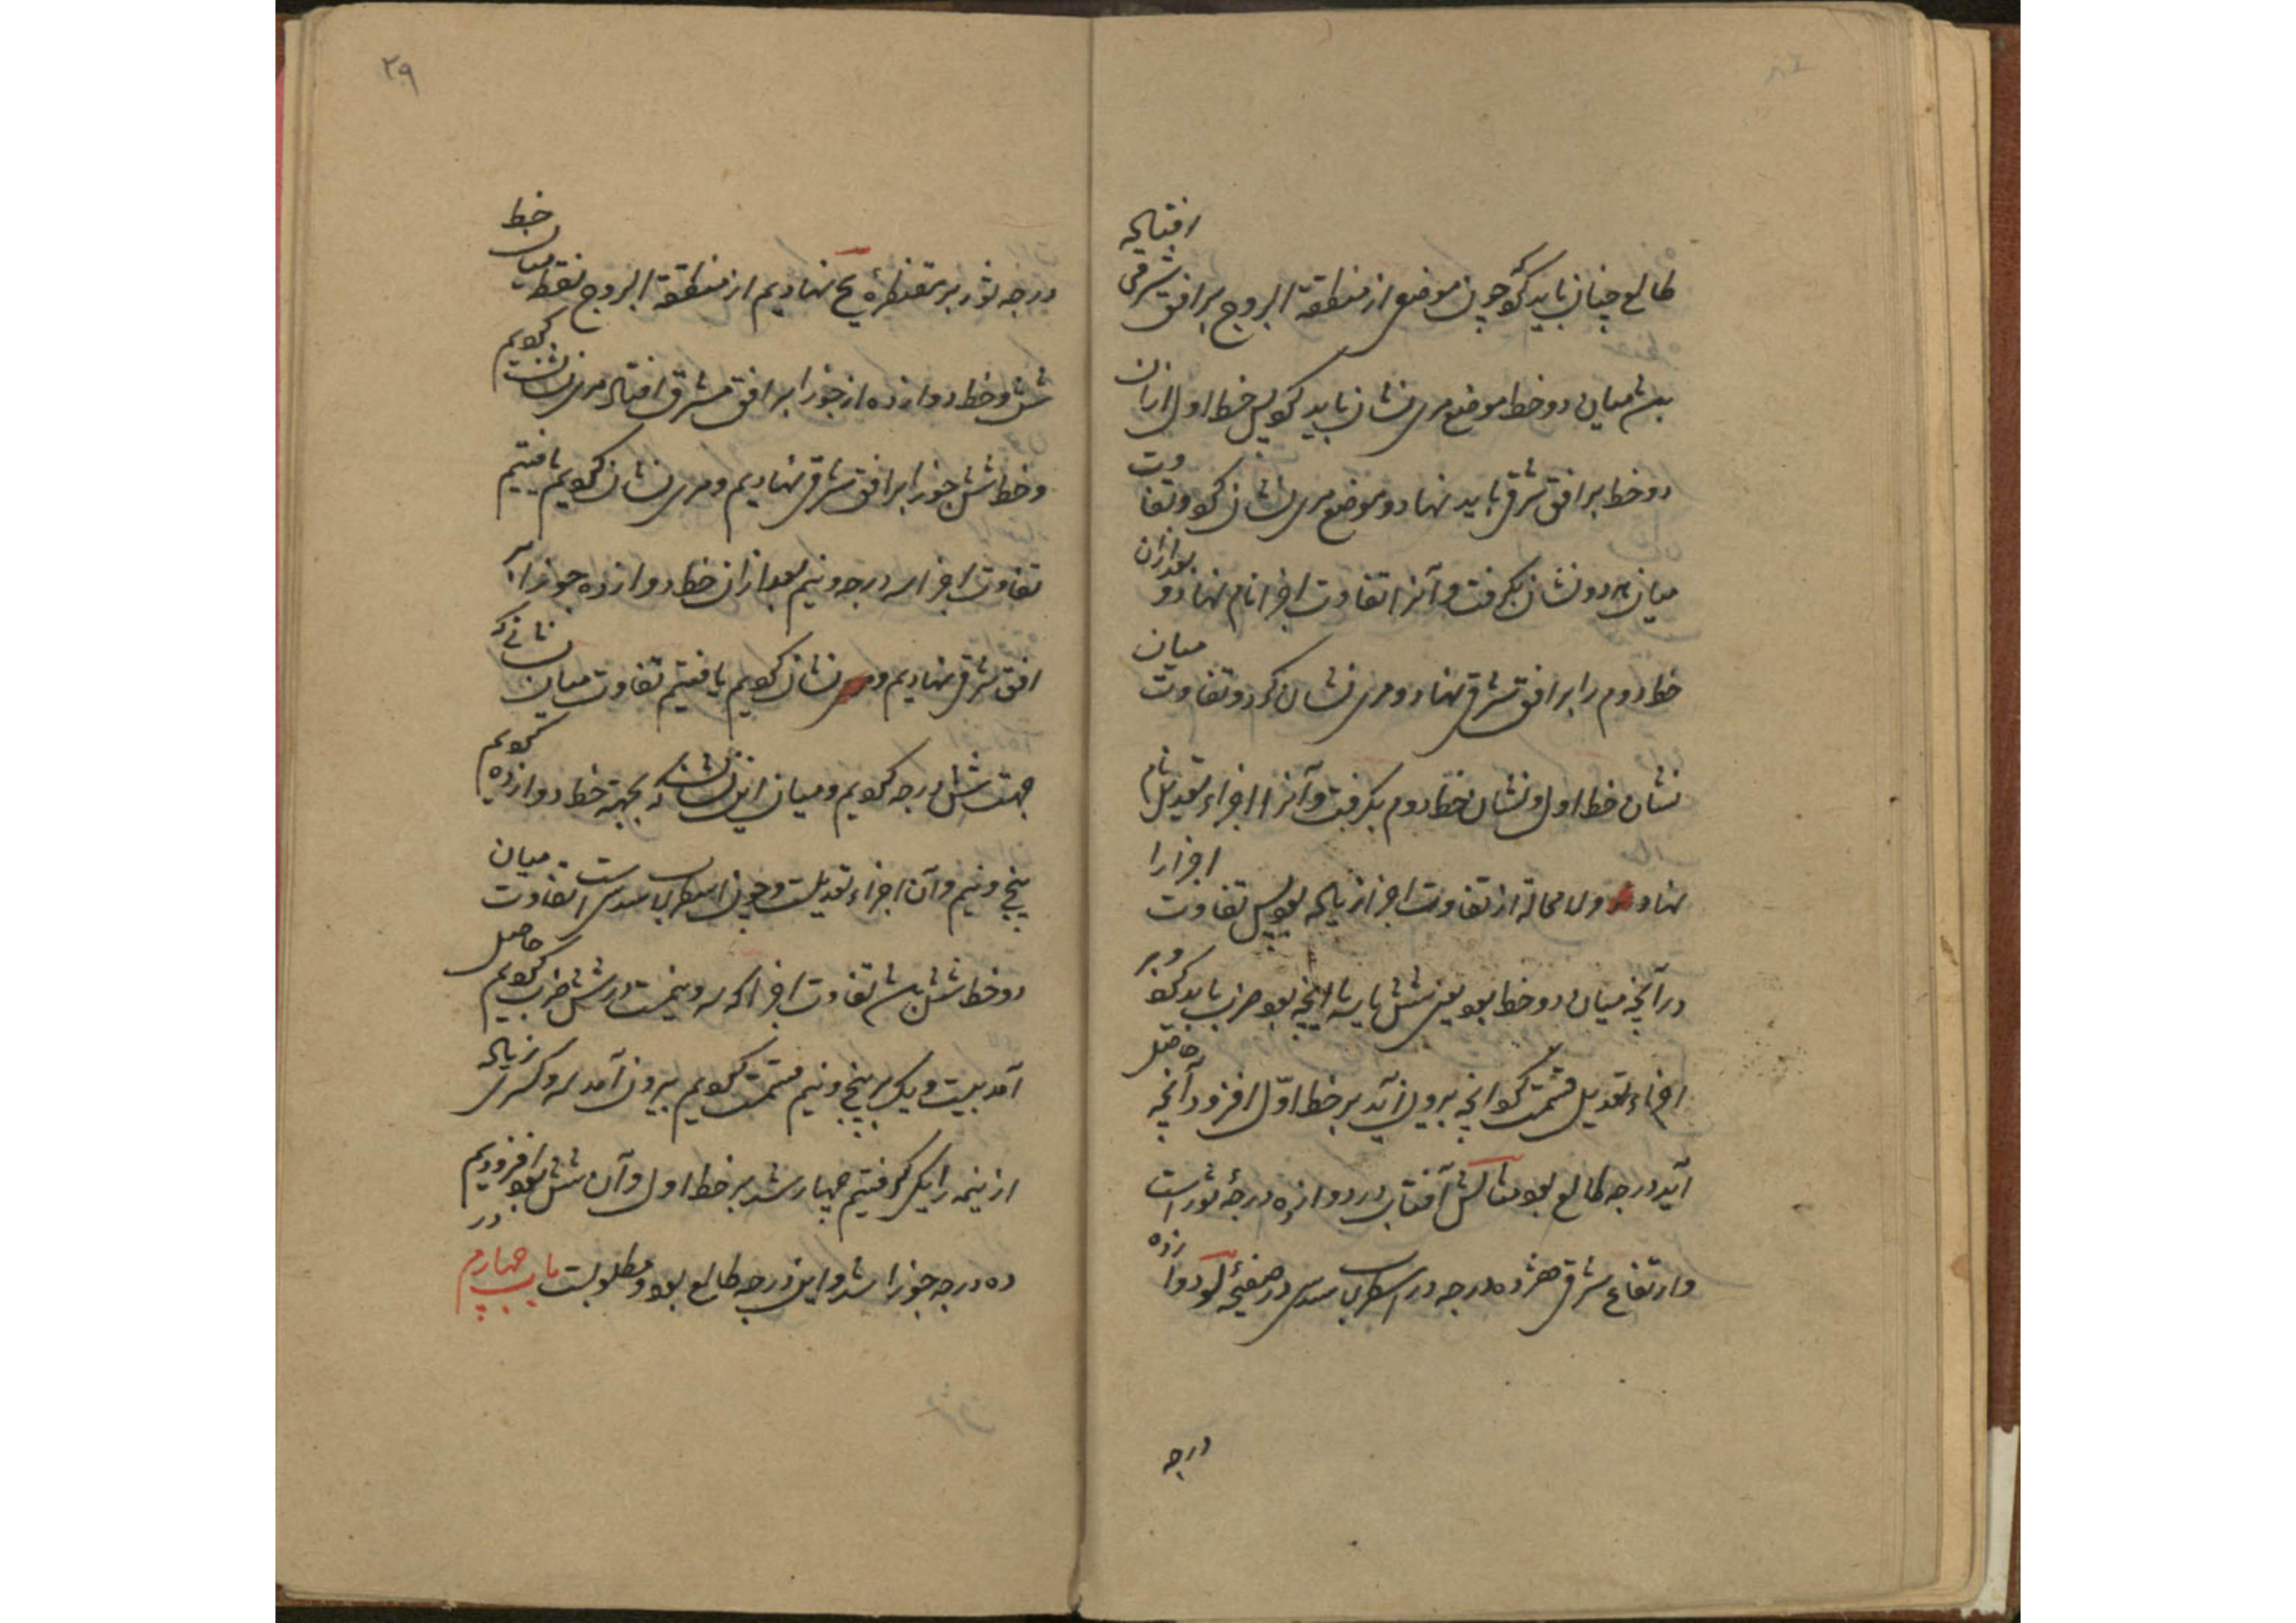 طالع چنان باید کرد که چون موضعی از منطقة البروج بر افق شرقی افتاده
باشد میان دو خط موضع مری نشان باید کرد پس خط اول ازان
دو خط بر افق شرقی باید نهاد و موضع مری نشان کرد و تفاوت
میان هر دو نشان بگرفت و آنرا تفاوت اجزا نام نهاد و بعد ازان
خط دوم را بر افق شرقی نهاد و مری نشان کرد و تفاوت میان
نشان خط اول و نشان خط دوم بگرفت و آنرا اجزاء تعدیل نام
نهاد و لا محاله از تفاوت اجزا زیاده بود پس تفاوت اجزا را
در آنچه میان دو خط بود یعنی شش یا سه یا آنچه بود ضرب باید کرد و بر
اجزاء تعدیل قسمت کرد آنچه بیرون آید بر خط اول افزود آنچه حاصل
آید درجه طالع بود مثالش آفتاب در دوازده درجهٔ ثور است
و ارتفاع شرقی هژده درجه در اسطرلاب سدسی در صفیحهٔ لو دوازده
درجه
۲۹
درجه ثور بر مقنطرهٔ یح نهادیم از منطقة البروج نقطه میان خط
شش و خط دوازده از جوزا بر افق مشرق افتاد مری نشان کردیم
و خط شش جوزا بر افق شرقی نهادیم و مری نشان کردیم یافتیم
تفاوت اجزا سه درجه و نیم بعد ازان خط دوازده جوزا بر
افق شرقی نهادیم و مری نشان کردیم یافتیم تفاوت میان نشانی که
جهت شش درجه کردیم و میان این نشان که بجهة خط دوازده کردیم
پنج و نیم و آن اجزاء تعدیلست و چون اسطرلاب سدسی است تفاوت میان
دو خط شش باشد تفاوت اجزا که سه و نیمست در شش ضرب کردیم حاصل
آمد بیست و یک بر پنج و نیم قسمت کردیم بیرون آمد سه و کسری زیاده
از نیمه را یک گرفتیم چهار شد بر خط اول و آن شش بود افزودیم
ده درجه جوزا شد و این درجه طالع بود و مطلوبست باب چهارم در